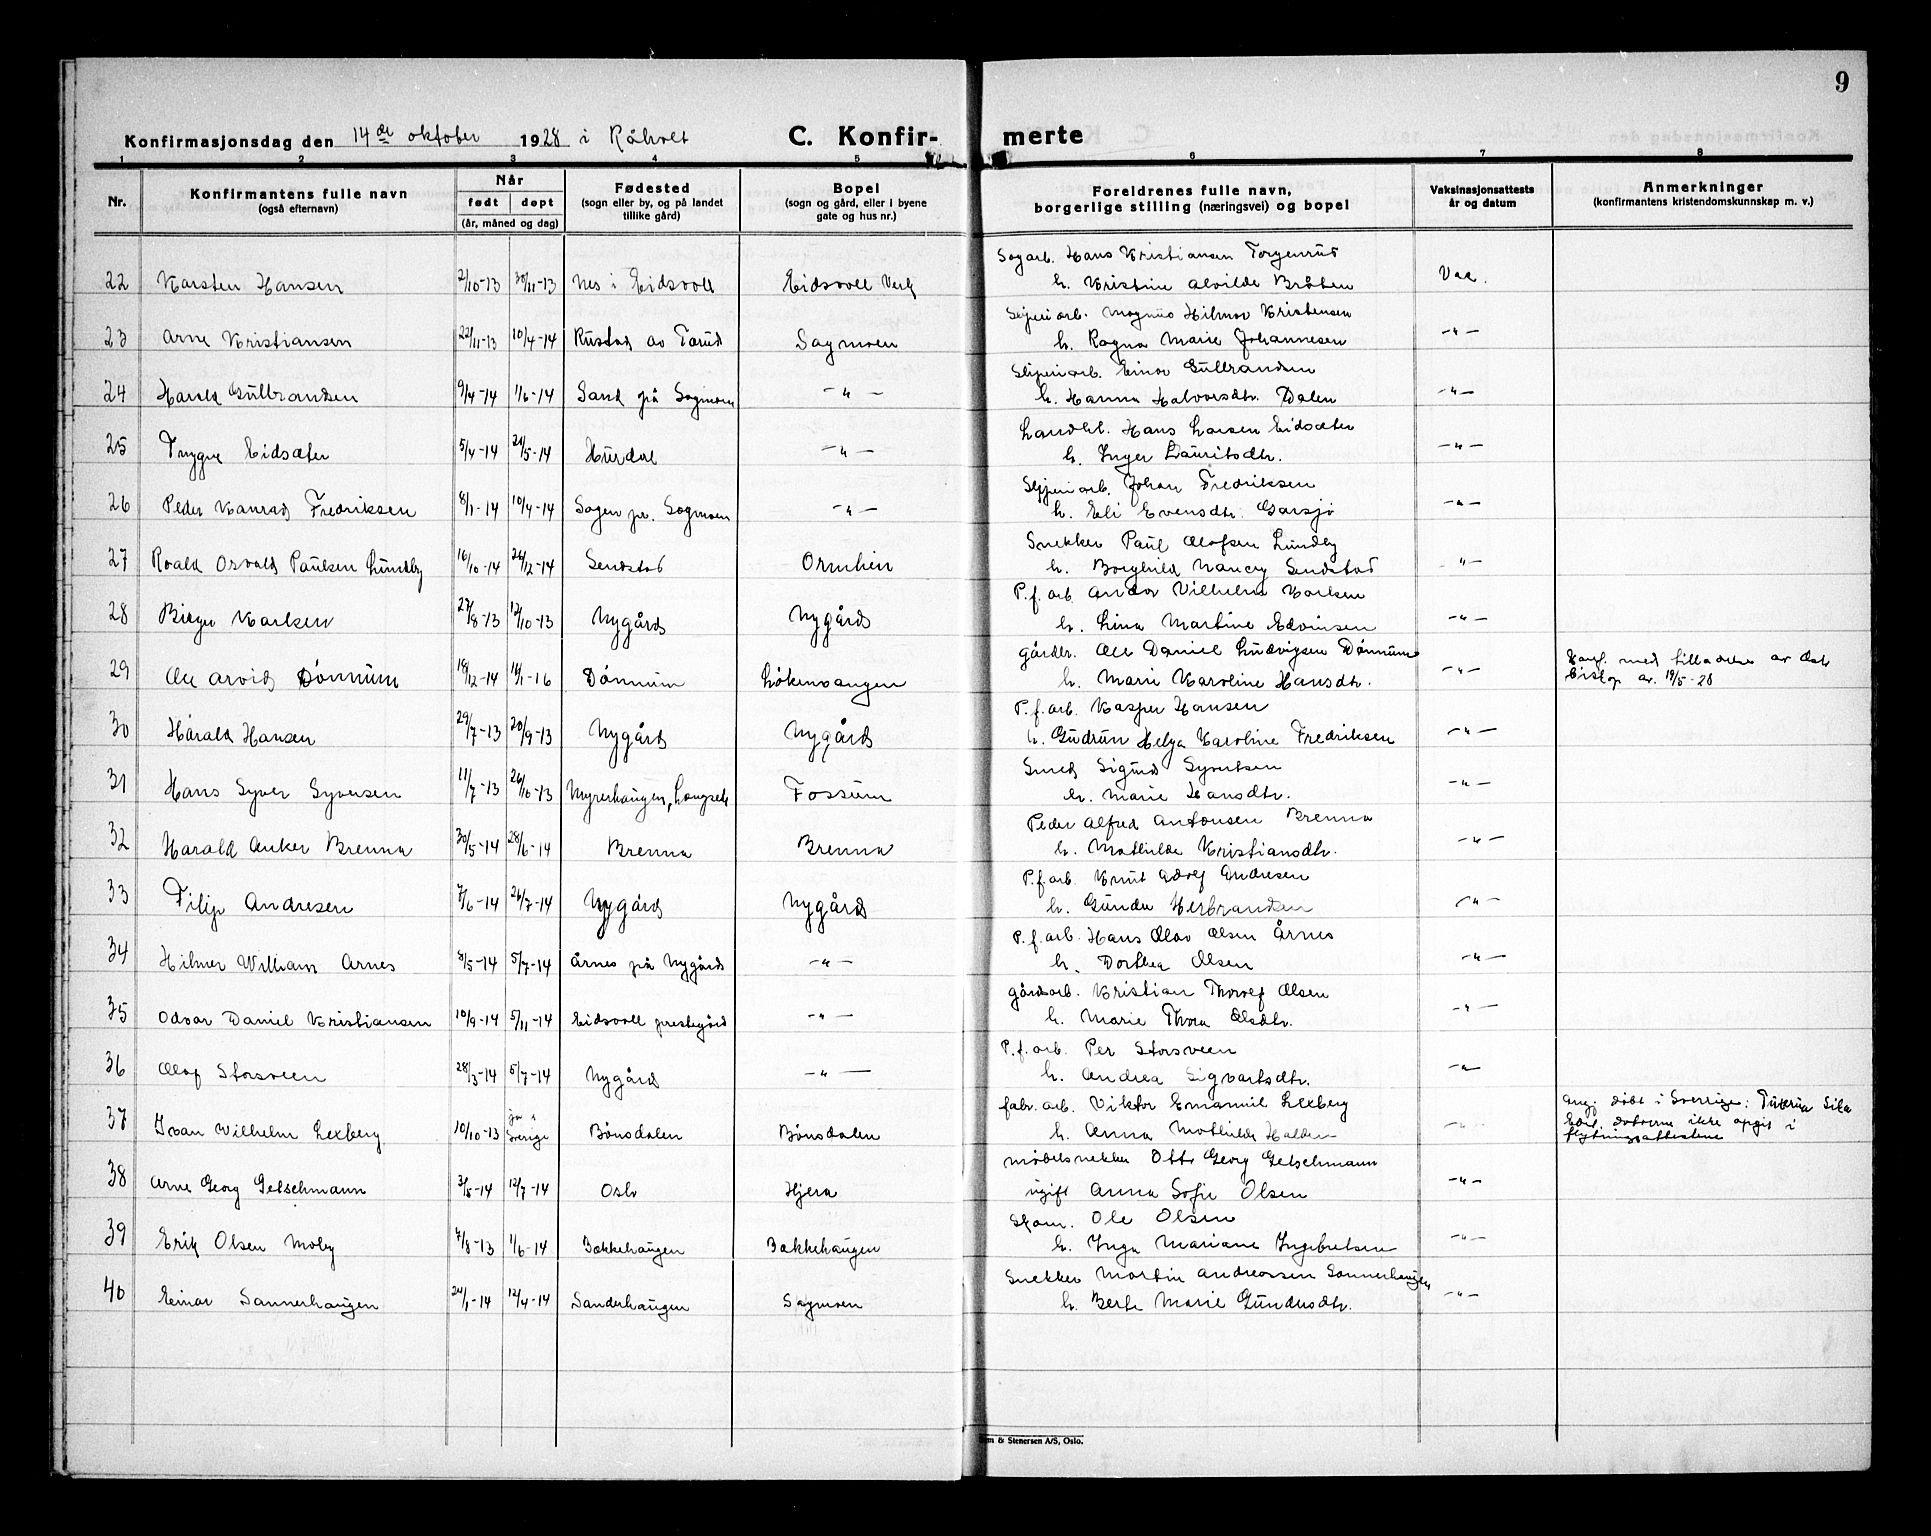 9
Konfirmasjonsdag den 14de oktober 1928 i Råholt C. Konfir- merte
1 2 3 4 5 6 7 8
Nr. Konfirmantens fulle navn (også efternavn) Når født døpt (år, måned og dag) Fødested (sogn eller by, og på landet tillike gård) Bopel (sogn og gård, eller i byene gate og hus nr.) Foreldrenes fulle navn, borgerlige stilling (næringsvei) og bopel Vaksinasjonsattests år og datum Anmerkninger (konfirmantens kristendomskunnskap m. v.)
Sagarb. Hans Kristiansen Torgenrud
22 Karsten Hansen 2/10-13 30/11-13 Nes i Eidsvoll Eidsvoll Verk h. Kristine Alvilde Bråten Vac.
Sliperiarb. Magnus Hilmar Kristensen
23 Arne Kristiansen 22/11-13 10/4-14 Rustad av Tarud Sagmoen h. Ragna Marie Johannesen -"-
Sliperiarb. Einar Gulbrandsen
24 Harald Gulbrandsen 9/4-14 1/6-14 Sand på Sagmoen -"- h. Hanna Halvorsdtr. Dalen -"-
Landhl. Hans Larsen Eidsæter
25 Trygve Eidsæter 5/4-14 21/5-14 Hurdal -"- h. Inger Lauritsdtr. -"-
Sliperiarb. Johan Fredriksen
26 Peder Konrad Fredriksen 8/1-14 10/4-14 Sagen pr. Sagmoen -"- h. Eli Evensdtr. Garsjø -"-
Snekker Paul Olofsen Lundby
27 Roald Osvald Paulsen Lundby 16/10-14 26/12-14 Sendstad Ormlien h. Borghild Nancy Sendstad -"-
P.f.arb. Andor Vilhelm Karlsen
28 Birger Karlsen 27/8-13 12/10-13 Nygård Nygård h. Lina Martine Edvinsen -"-
gårdbr. Ole Daniel Ludvigsen Dønnum
29 Ole Arvid Dønnum 18/12-14 14/1-16 Dønnum Løkenvangen h. Marie Karoline Hansdtr. -"- Konf. med tilladelse av Oslo
biskop av 19/5-28
P.f.arb. Kasper Hansen
30 Harald Hansen 29/7-13 20/9-13 Nygård Nygård h. Gudrun Helga Karoline Fredriksen -"-
Smed Sigurd Syversen
31 Hans Syver Syversen 11/7-13 26/10-13 Myrerhaugen, Langset Fossum h. Marie Hansdtr. -"-
Peder Alfred Antonsen Brenna
32 Harald Anker Brenna 30/5-14 28/6-14 Brenna Brenna h. Mathilde Kristiansdtr. -"-
P.f.arb. Knut Adolf Andresen
33 Filip Andresen 7/6-14 26/7-14 Nygård Nygård h. Gunda Herbrandsen -"-
P.f.arb. Hans Olav Olsen Årnes
34 Hilmer William Arnes 8/5-14 5/7-14 Årnes på Nygård -"- h. Dorthea Olsen -"-
gårdsarb. Kristian Thorolf Olsen
35 Odvar Daniel Kristiansen 10/9-14 5/11-14 Eidsvoll prestegård -"- h. Marie Thora Olsdtr. -"-
P.f.arb. Per Storsveen
36 Olaf Storsveen 28/3-14 5/7-14 Nygård -"- h. Andrea Sigvartsdtr. -"-
fabr. arb. Viktor Emanuel Lexberg Ang. døbt i Sverrige:
37 Ivan Wilhelm Lexberg 10/10-13 i Sverige Bønsdalen Bønsdalen h. Anna Mathilde -"- datoene ikke opgit i
flytningsattestene
møbelsnekker Otto Georg Getschmann
38 Arne Georg Getschmann 3/5-14 12/7-14 Oslo Hjera ugift Anna Sofie Olsen -"-
Skom. Ole Olsen
39 Erik Olsen Moby 7/8-13 1/6-14 Bakkehaugen Bakkehaugen h. Inga Mariane Ingebretsen -"-
Snekker Martin Andreassen Sannerhaugen
40 Einar Sannerhaugen 24/1-14 12/4-14 Sanderhaugen Sagmoen h. Berte Marie Gundersdtr. -"-
& Stenersen A/S, Oslo.